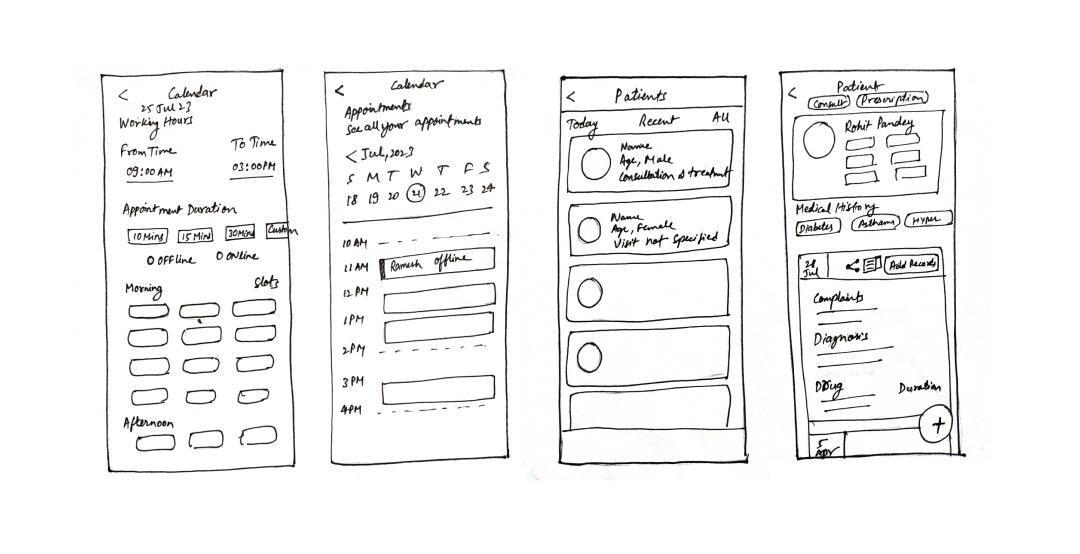 < Calendar
25 Jul 23
Working Hours
From Time To Time
09:00 AM 03:00PM
Appointment Duration
10 Mins 15 Mins 30 Mins Custom
OFFline ONline
Morning Slots
Afternoon
< Calendar
Appointments
See all your appointments
< Jul, 2023
S M T W T F S
18 19 20 21 22 23 24
10 AM
11 AM Ramesh offline
12 PM
1 PM
2 PM
3 PM
4 PM
< Patients
Today Recent All
Name
Age, Male
Consultation & treatment
Name
Age, Female
Visit not Specified
< Patient
Consult Prescription
Rohit Pandey
Medical History
Diabetes Asthama Hyper
28 Jul Add Records
Complaints
Diagnosis
Drug Duration
+
5 Apr